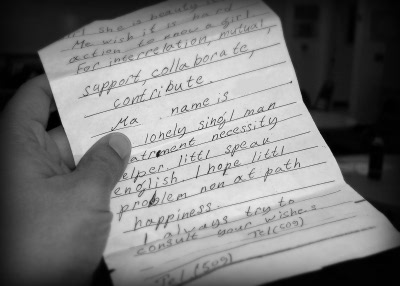 she is beauty
Me wish it is hard
action to know a girl
For interrelation, mutual,
support, collaborate,
contribute.
Ma name is
lonely singl man
atment necessity
elper littl speau
english I hope littl
problem non at path
happiness.
I always try to
consult your wishes
Tel (509)
Tel (509)